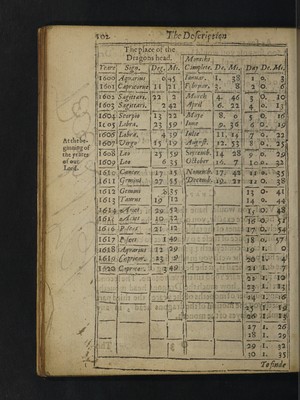 102 The Description
The place of the
Dragons head.
Yeare Sign. Deg. Mi. Moneths Complete. De. Mi. Day De. Mi.
1600 Aquarius 0 45 Ianuar. 1. 38 1 0. 3
1601 Capricorne 11 21 Februar. 3. 8 2 0. 6
1602 Sagittari. 22 2 March 4. 46 3 0. 10
1603 Sagittari. 2 42 April 6. 22 4 0. 13
1604 Scorpio 13 22 Maye 8. 0 5 0. 16
1605 Libra. 23 59 Iune 9. 36 6 0. 19
1606 Libra. 4 39 Iulie 11. 14 7 0. 22
1607 Virgo 15 19 August. 12. 53 8 0. 25
1608 Leo 25 59 Septemb. 14. 28 9 0. 29
1609 Leo 6 35 October 16. 7 10 0. 32
1610 Cancer 17 15 Nouemb. 17. 42 11 0. 35
1611 Gemini 27 55 Decemb. 19. 21 12 0. 38
1612 Gemini 8 35 13 0. 41
1613 Taurus 19 12 14 0. 44
1614 Aries 29 52 15 0. 48
1615 Aries 10 32 16 0. 51
1616 Pisces 21 12 17 0. 54
1617 Pisces 1 49 18 0. 57
1618 Aquarius 12 29 19 1. 0
1619 Capricor. 23 9 20 1. 4
1620 Capricor. 3 49 21 1. 7
22 1. 10
23 1. 13
24 1. 16
25 1. 19
26 1. 23
27 1. 26
28 1. 29
29 1. 32
30 1. 35
At the beginning of
the yeares
of our
Lord.
To finde